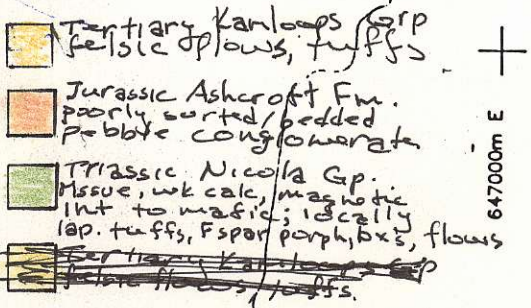 Tertiary Kamloops Grp
felsic flows, tuffs
Jurassic Ashcroft Fm.
poorly sorted/bedded
pebble conglomerate
Triassic Nicola Gp.
Mssve, wk calc, magnetic
Int to mafic; locally
lap. tuffs, Fspar porph, bxs, flows
Tertiary Kamloops Grp
felsic flows tuffs.
647000m E